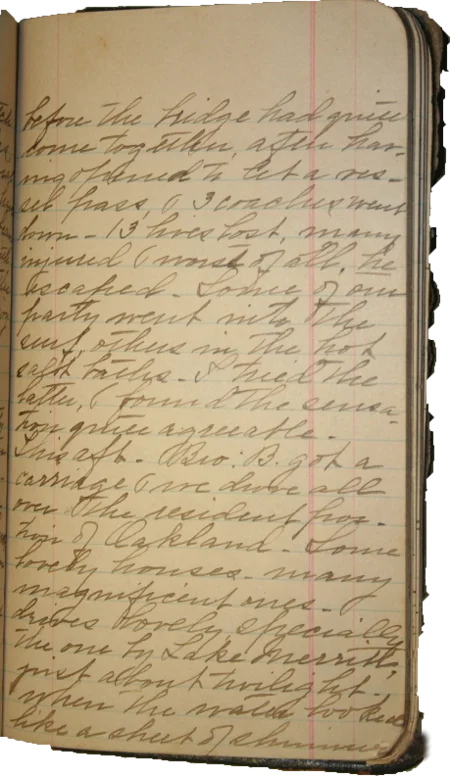 before the bridge had quite
come together, after hav-
ing opened to let a ves-
sel pass, & 3 coaches went
down - 13 lives lost, many
injured & worst of all, he
escaped. Some of our
party went into the
surf, others in the hot
salt baths - I tried the
latter, & found the sensa-
tion quite agreeable.
This aft. Bro. B. got a
carriage & we drove all
over the resident por-
tion of Oakland. Some
lovely houses - many
magnificent ones.
drives lovely, specially
the one by Lake Merritt,
just about twilight,
when the water looked
like a sheet of shimmer